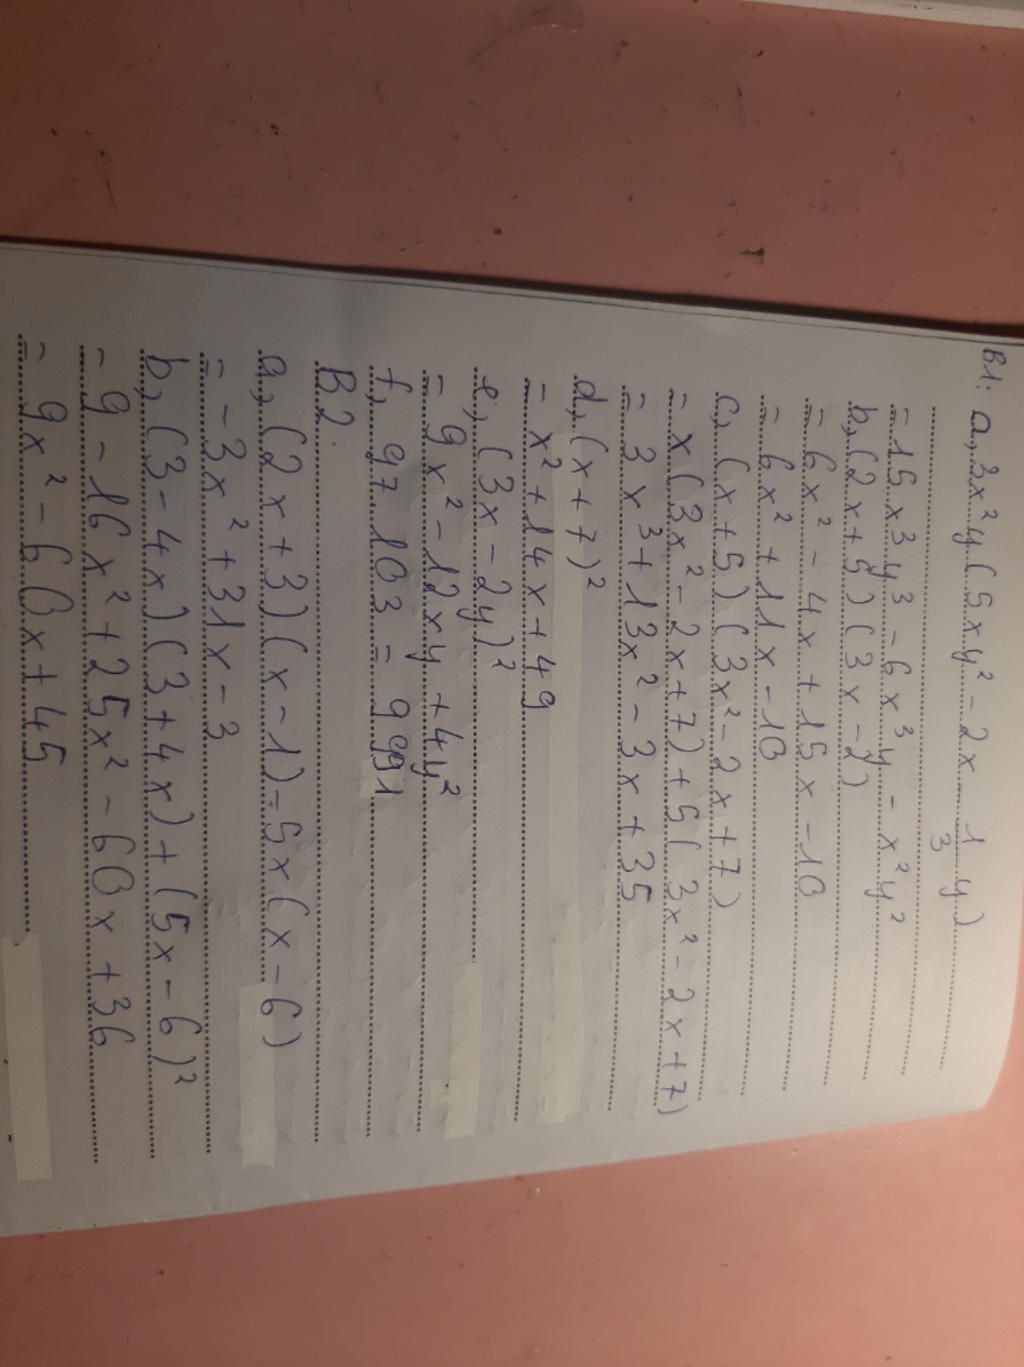 B1: a, 3x²y (5xy² - 2x 1/3 y)
= 15x³y³ - 6x³y - x²y²
b, (2x+5)(3x-2)
= 6x² - 4x + 15x - 10
= 6x² + 11x - 10
c, (x+5)(3x² - 2x + 7)
= x(3x² - 2x + 7) + 5(3x² - 2x + 7)
= 3x³ + 13x² - 3x + 35
d, (x+7)²
= x² + 14x + 49
e, (3x - 2y)²
= 9x² - 12xy + 4y²
f, 97.103 = 9991
B2.
a, (2x+3)(x-1) - 5x(x-6)
= -3x² + 31x - 3
b, (3-4x)(3+4x) + (5x-6)²
= 9 - 16x² + 25x² - 60x + 36
= 9x² - 60x + 45